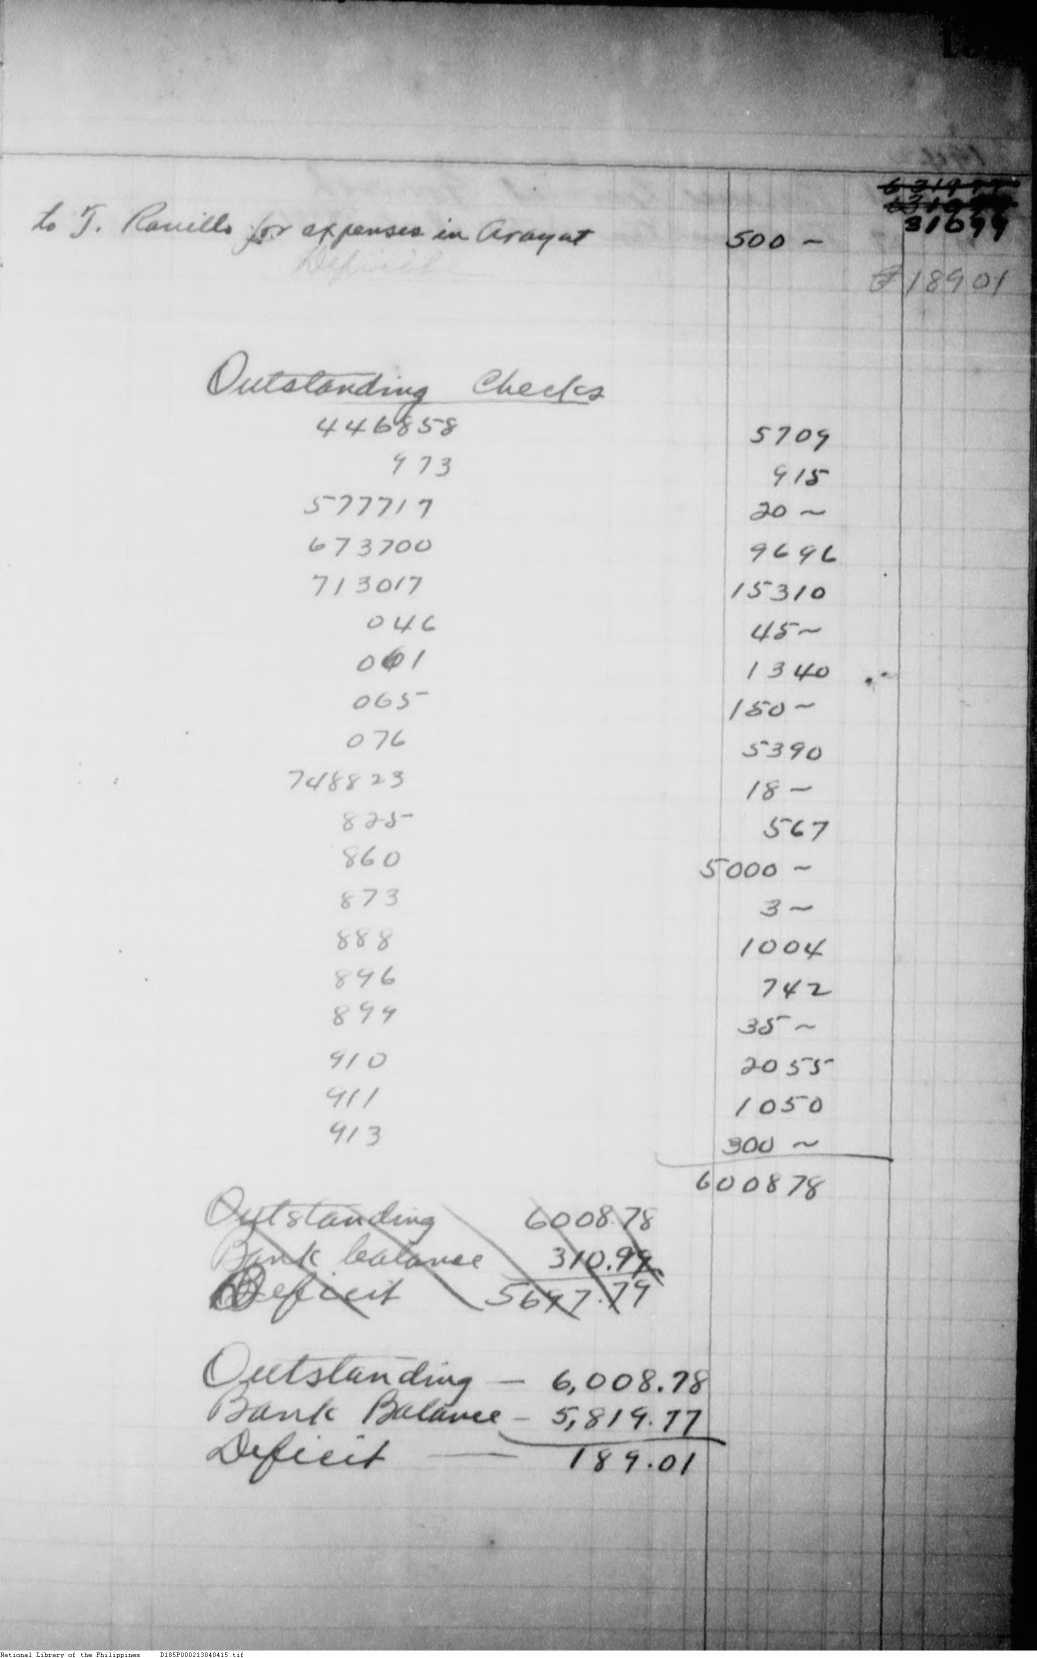 31099
to J. Ravillo for expenses in Arayat 500 ~
Deficit
₱ 189 01
Outstanding Checks
446858 57 09
973 9 15
577717 20 ~
673700 96 96
713017 153 10
046 45 ~
061 13 40
065 150 ~
076 53 90
748823 18 ~
825 5 67
860 5000 ~
873 3 ~
888 10 04
896 7 42
899 35 ~
910 20 55
911 10 50
913 300 ~
6008 78
Outstanding 6008.78
Bank balance 310.99
Deficit 5697.79
Outstanding — 6,008.78
Bank Balance – 5,819.77
Deficit — 189.01
National Library of the Philippines D185P000213040415.tif